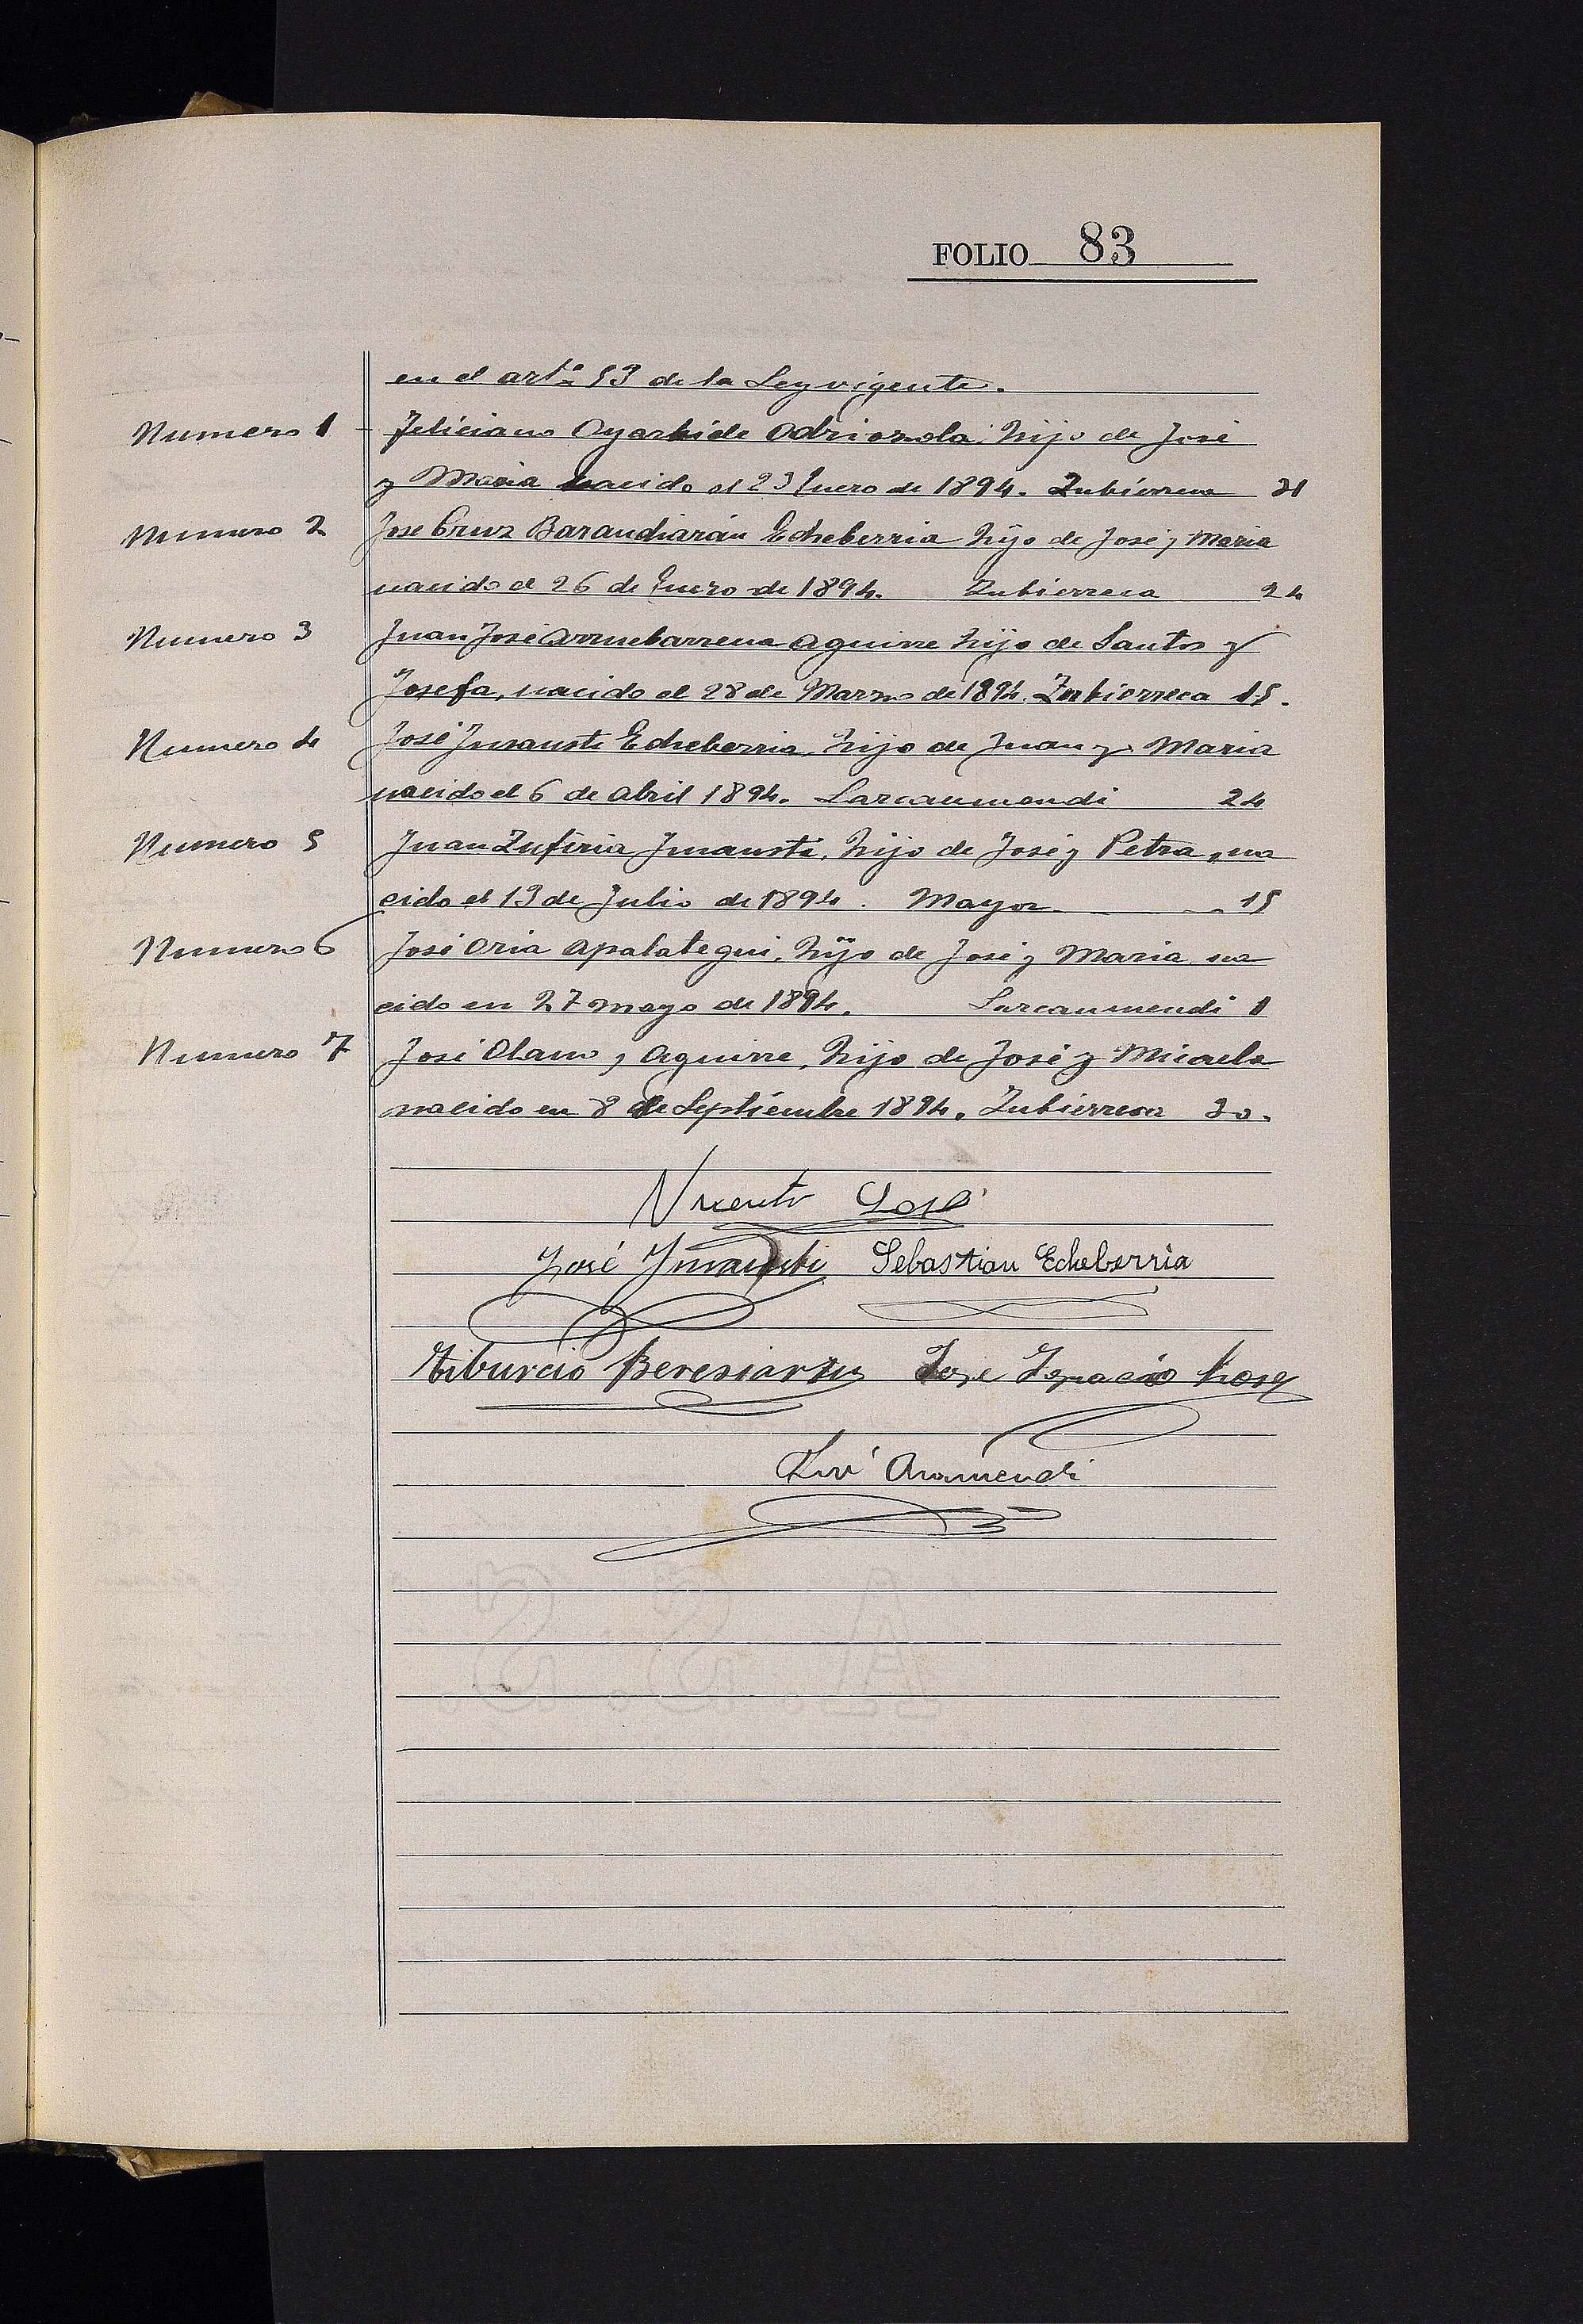 FOLIO 83
en el artº 53 de la Ley vigente.
Numero 1 Feliciano Oyarbide Odriozola, hijo de José
y Maria nacido el 23 Enero de 1894. Zubierreca 31
Numero 2 Jose Cruz Barandiarán Echeberria hijo de José y Maria
nacido el 26 de Enero de 1894. Zubierreca 24
Numero 3 Juan José Arruebarrena Aguirre hijo de Santos y
Josefa, nacido el 28 de Marzo de 1894. Zubierreca 15.
Numero 4 José Insausti Echeberria, hijo de Juan y Maria
nacido el 6 de Abril 1894. Larcaumendi 24
Numero 5 Juan Zufiria Insausti, hijo de José y Petra, na
cido el 13 de Julio de 1894. Mayor 15
Numero 6 José Oria Apalategui, hijo de José y Maria, na
cido en 27 mayo de 1894. Larcaumendi 1
Numero 7 José Olano y Aguirre, hijo de José y Micaela
nacido en 8 de Septiembre 1894. Zubierreca 30.
José Insausti Sebastian Echeberria
Tiburcio Beresiartu Jose Ignacio
Aramendi